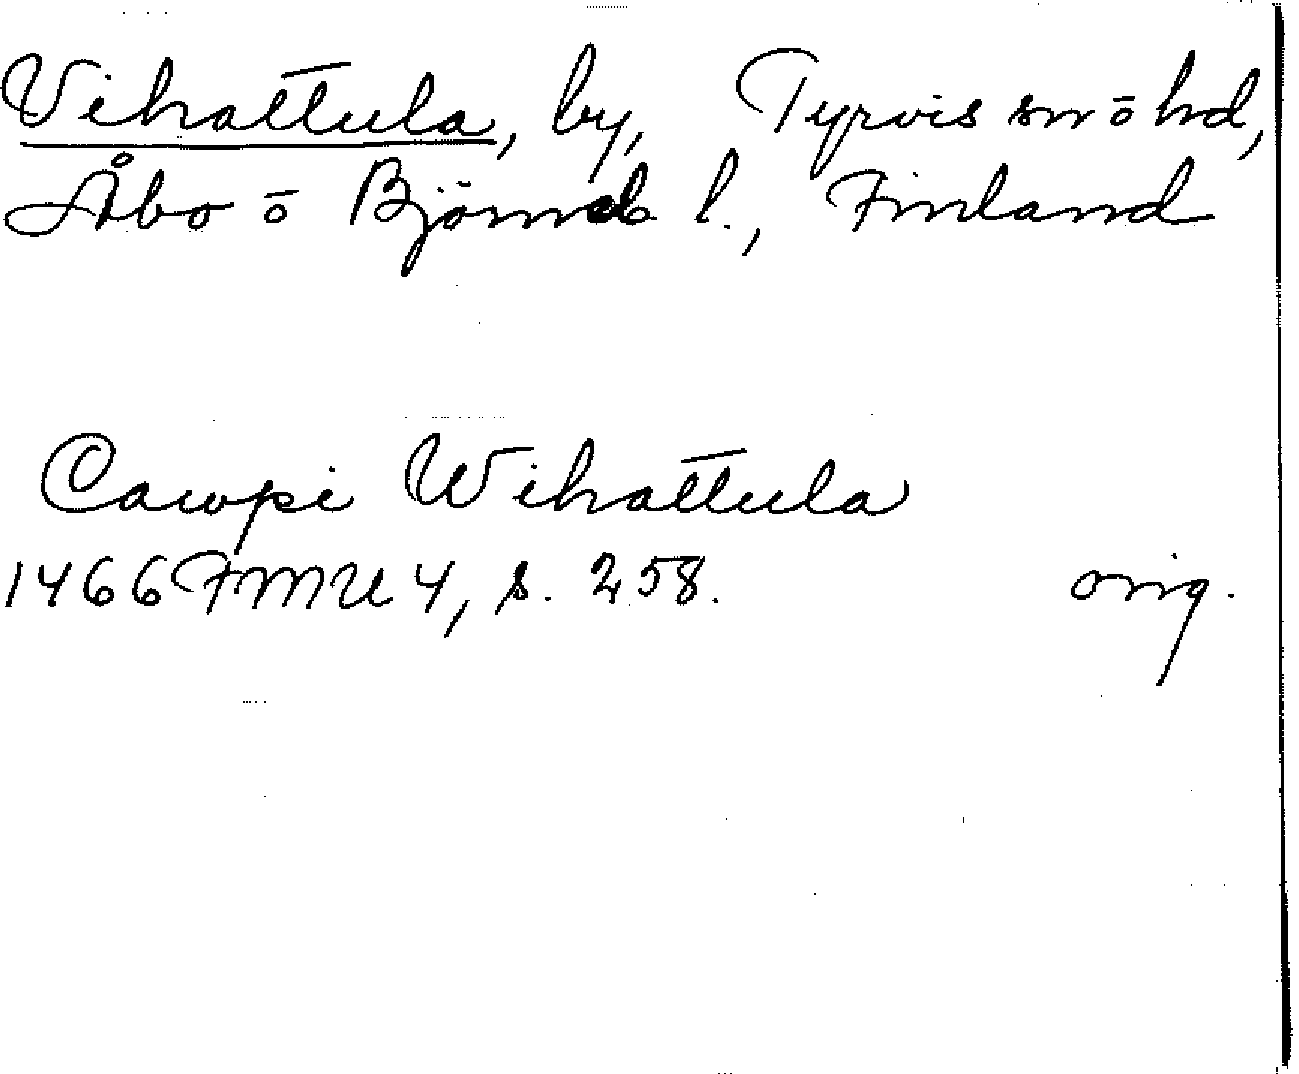 Vihattula, by, Tyrvis sn ō hd,
Åbo ō Björneb l., Finland
Cawpi Wihattula
1466 FMU 4, s. 258. orig.